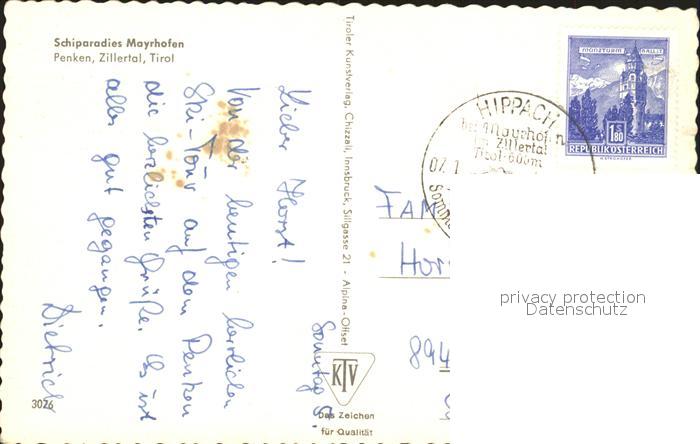 Schiparadies Mayrhofen
Penken, Zillertal, Tirol
Sonntag
Lieber Horst!
Von der heutigen herrlichen
Ski-Tour auf dem Penken
die herzlichsten Grüße. Es ist
alles gut gegangen.
Dietrich
3026
Tiroler Kunstverlag, Chizzali, Innsbruck, Sillgasse 21 - Alpina-Offset
KTV
Das Zeichen
für Qualität
MÜNZTURM HALL I.T.
S 1.80
REPUBLIK ÖSTERREICH
HIPPACH
bei Mayrhofen
im Zillertal
Tirol-600m
07.1
Somm
FAM
Hor
894
privacy protection
Datenschutz